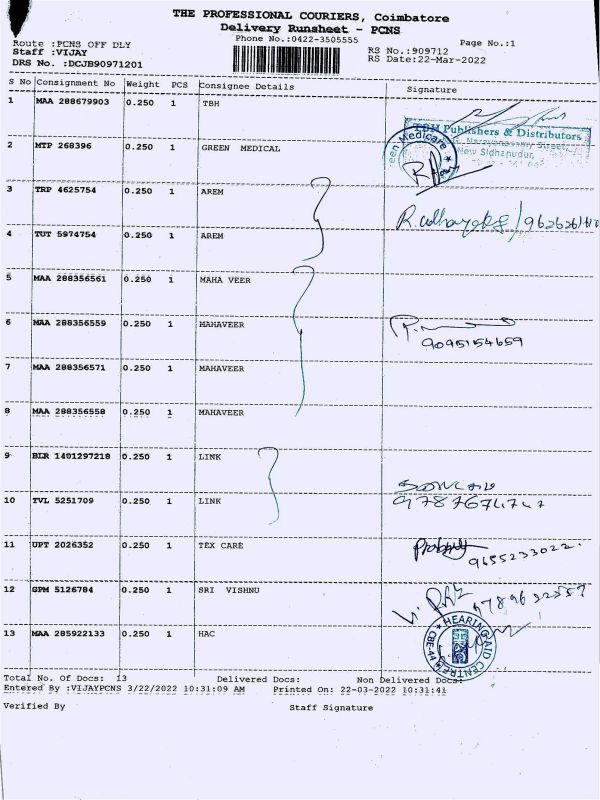 THE PROFESSIONAL COURIERS, Coimbatore
Delivery Runsheet - PCNS
Phone No.:0422-3505555
Page No.:1
Route :PCNS OFF DLY
Staff :VIJAY
DRS No. :DCJB90971201
RS No.:909712
RS Date:22-Mar-2022
S No Consignment No Weight PCS Consignee Details Signature
1 MAA 288679903 0.250 1 TBH
TBH Publishers & Distributors
New Sidhapudur,
2 MTP 268396 0.250 1 GREEN MEDICAL
Green Medicare
3 TRP 4625754 0.250 1 AREM
4 TUT 5974754 0.250 1 AREM
5 MAA 288356561 0.250 1 MAHA VEER
6 MAA 288356559 0.250 1 MAHAVEER
9095154659
7 MAA 288356571 0.250 1 MAHAVEER
8 MAA 288356558 0.250 1 MAHAVEER
9 BLR 1401297218 0.250 1 LINK
10 TVL 5251709 0.250 1 LINK
11 UPT 2026352 0.250 1 TEX CARE
9655233022.
12 GPM 5126784 0.250 1 SRI VISHNU
9789632557
13 MAA 285922133 0.250 1 HAC
HEARING AID CENTRE
Total No. Of Docs: 13 Delivered Docs: Non Delivered Docs:
Entered By :VIJAYPCNS 3/22/2022 10:31:09 AM Printed On: 22-03-2022 10:31:41
Verified By Staff Signature